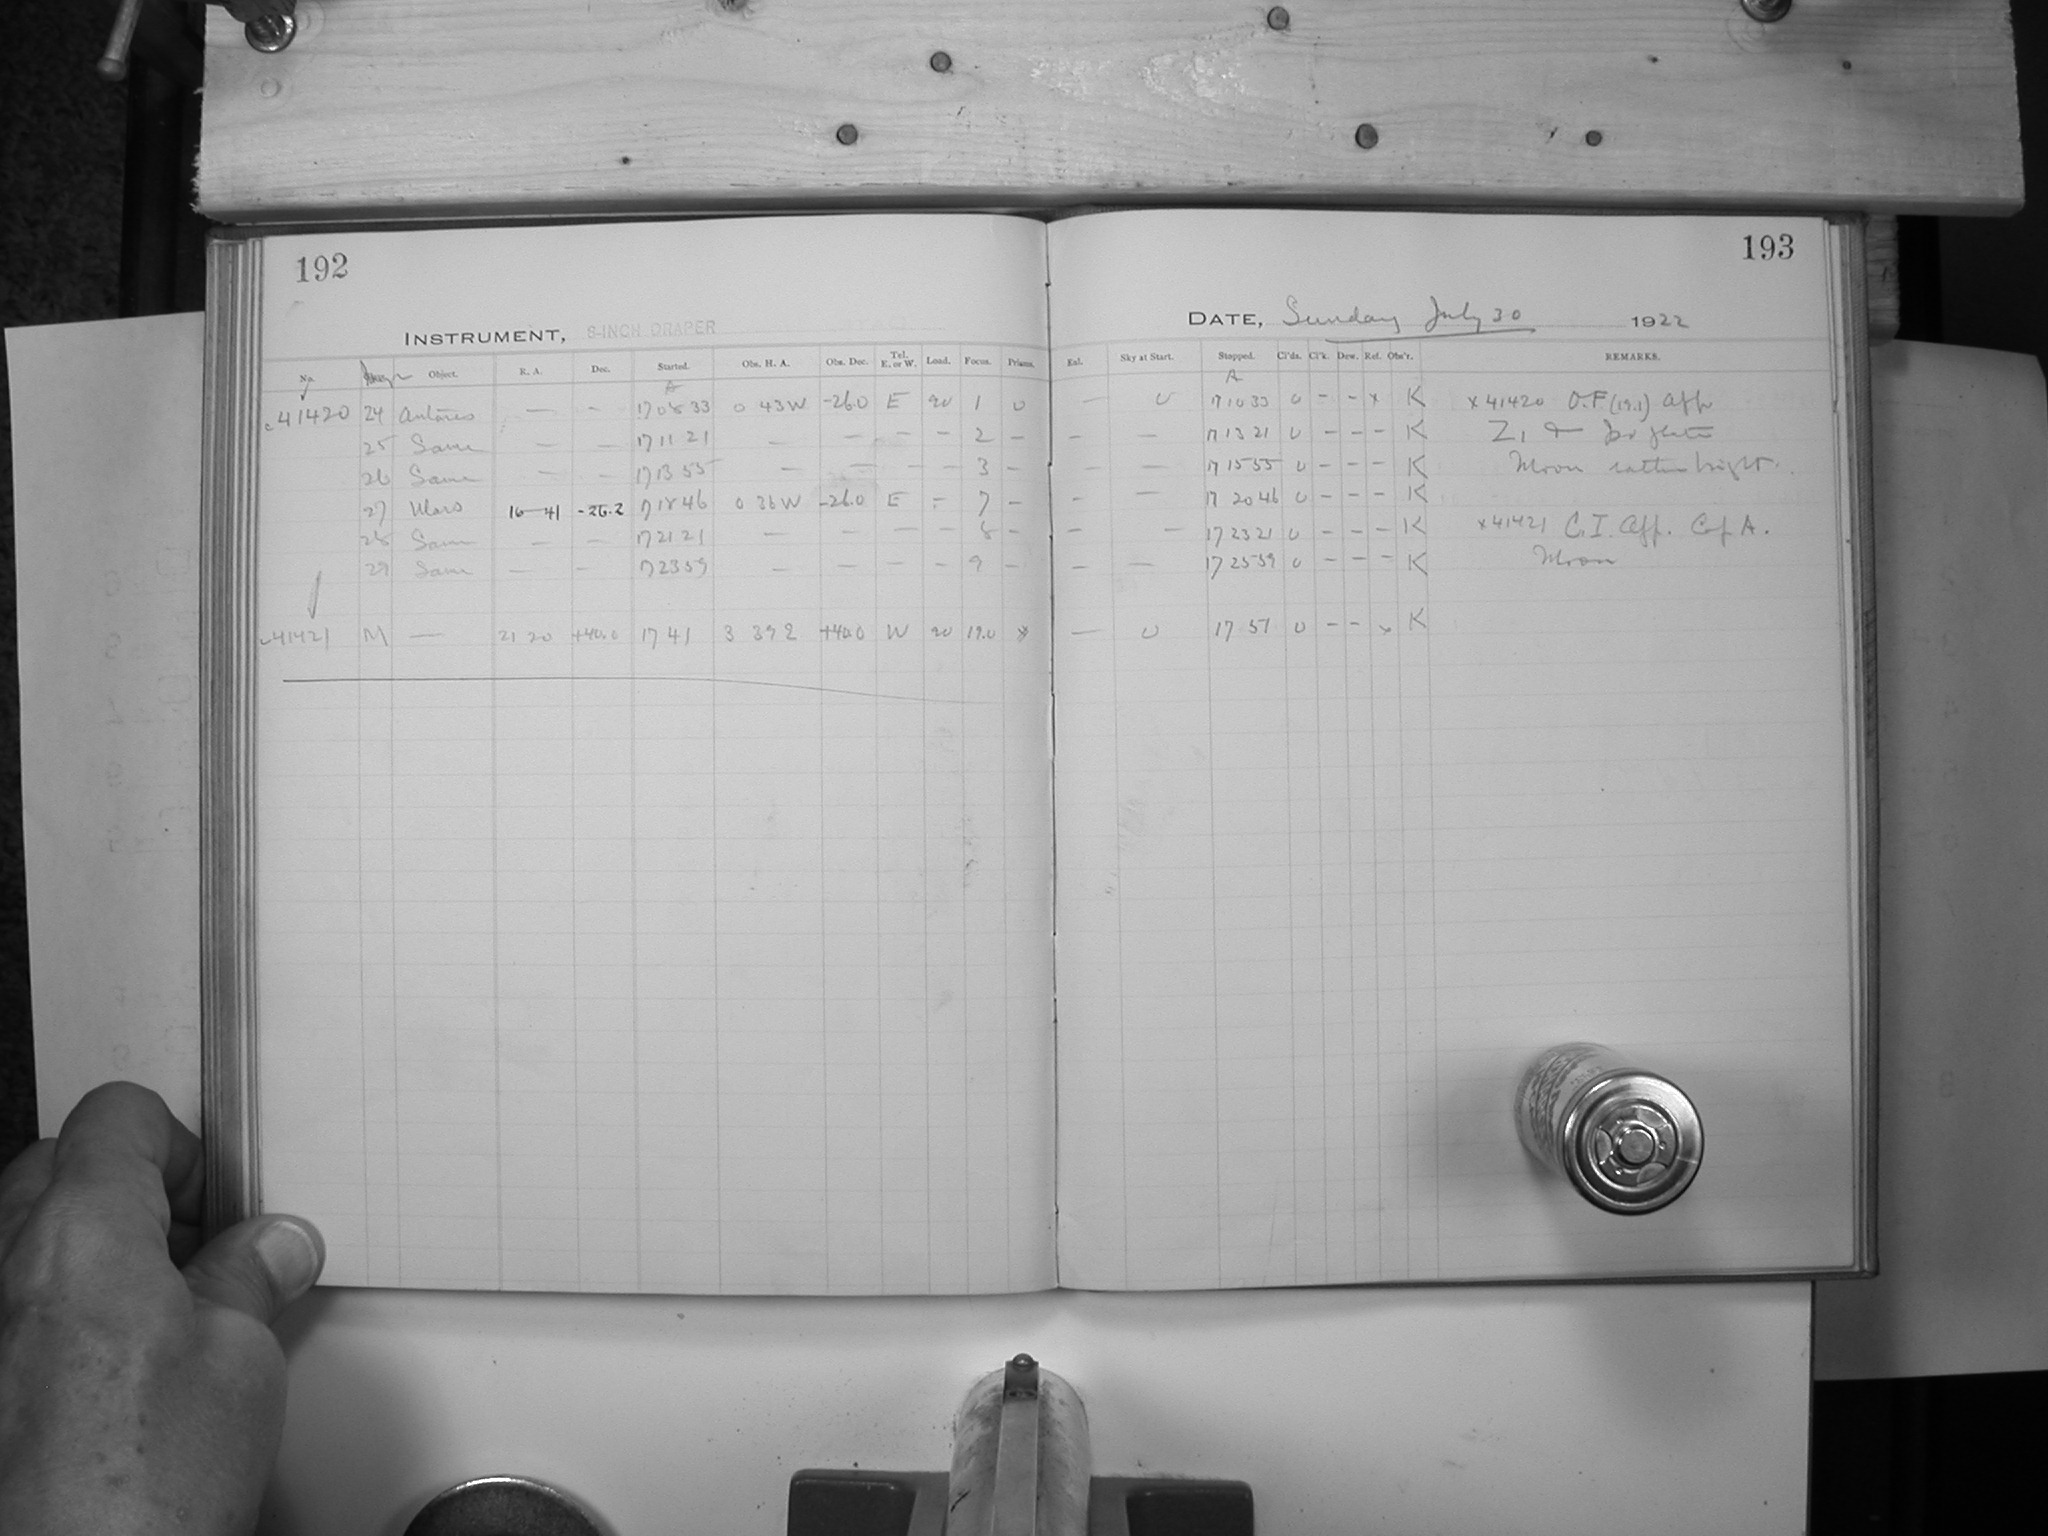 192
INSTRUMENT, 8-INCH DRAPER
No. Object. R. A. Dec. Started. Obs. H. A. Obs. Dec. Tel. E. or W. Load. Focus. Prisms.
A
41420 24 Antares — — 17 08 33 0 43 W -26.0 E 20 1 0
25 Same — — 17 11 21 — — — — 2 —
26 Same — — 17 13 55 — — — — 3 —
27 Mars 16 41 -26.2 17 18 46 0 36 W -26.0 E — 7 —
28 Same — — 17 21 21 — — — — 8 —
29 Same — — 17 23 59 — — — — 9 —
41421 M — 21 20 +40.0 17 41 3 39 2 +40.0 W 20 19.0 x
193
DATE, Sunday July 30 1922
Enl. Sky at Start. Stopped. Cl'ds. Cl'k. Dew. Ref. Obs'r. REMARKS.
A
— 0 17 10 33 0 — — x K x 41420 O.F (19.1) aff
— — 17 13 21 0 — — — K Z1
— — 17 15 55 0 — — — K Moon rather bright.
— — 17 20 46 0 — — — K
— 17 23 21 0 — — — K x 41421 C.I. aff. Cap A.
— — 17 25 59 0 — — — K Moon
— 0 17 51 0 — — x K